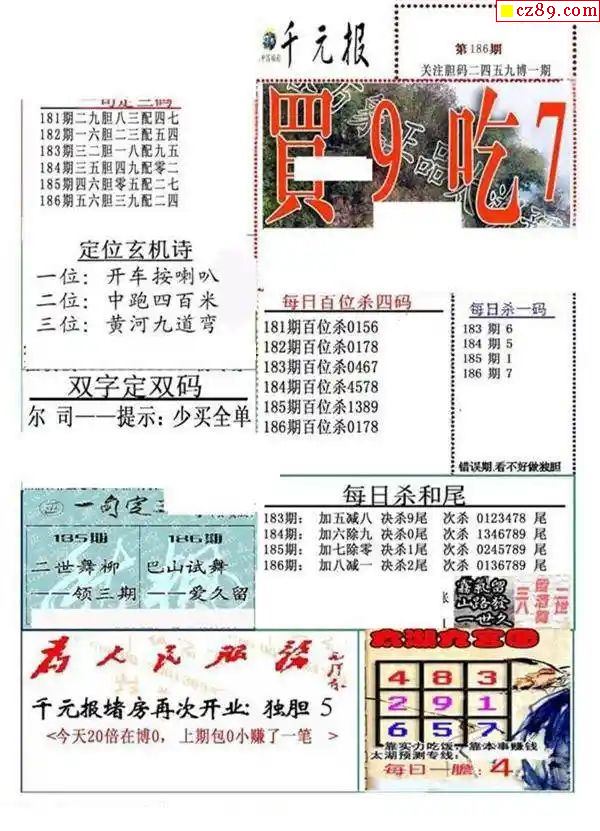 cz89.com
千元报
第186期
关注胆码二四五九博一期
181期二九胆八三配四七
182期一六胆二三配五四
183期三二胆一八配九五
184期三五胆四九配零二
185期四六胆零五配二七
186期五六胆三九配二四
買9吃7
定位玄机诗
一位：开车按喇叭
二位：中跑四百米
三位：黄河九道弯
每日百位杀四码
181期百位杀0156
182期百位杀0178
183期百位杀0467
184期百位杀4578
185期百位杀1389
186期百位杀0178
每日杀一码
183 期 6
184 期 5
185 期 1
186 期 7
错误期.看不好做独胆
双字定双码
尔 司——提示：少买全单
每日杀和尾
183期： 加五减八 决杀9尾 次杀 0123478 尾
184期： 加六除九 决杀0尾 次杀 1346789 尾
185期： 加七除零 决杀1尾 次杀 0245789 尾
186期： 加八减一 决杀2尾 次杀 0136789 尾
一句定三
185期
二世舞柳
——领三期
186期
巴山试舞
——爱久留
为人民服务
千元报堵房再次开业: 独胆 5
<今天20倍在博0，上期包0小赚了一笔 >
太湖九宫图
4 8 3
2 9 1
6 5 7
靠实力吃饭，靠本事赚钱
太湖预测专线:
每日一胆: 4